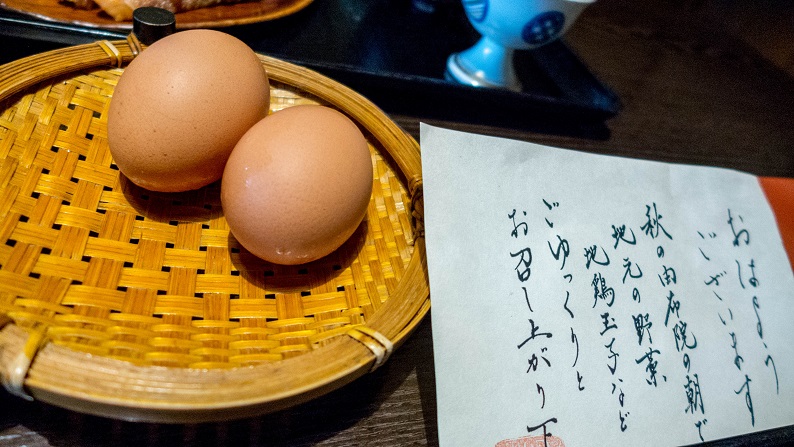 おはよう
ございます
秋の由布院の朝で
地元の野菜
地鶏玉子など
ごゆっくりと
お召し上がり下